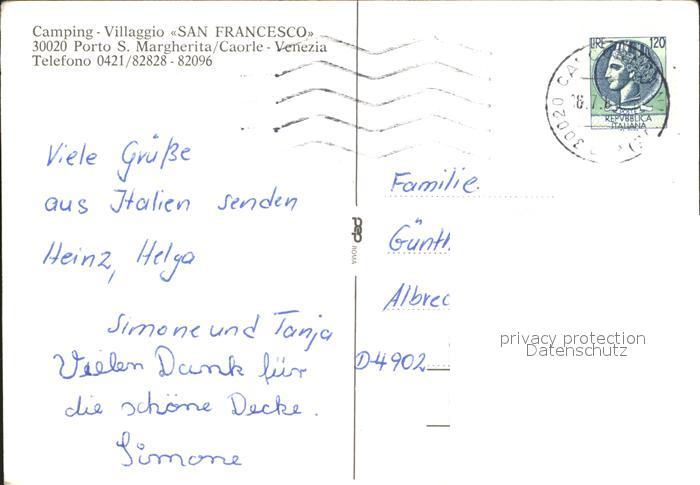 Camping - Villaggio «SAN FRANCESCO»
30020 Porto S. Margherita/Caorle - Venezia
Telefono 0421/82828 - 82096
Viele Grüße
aus Italien senden
Heinz, Helga
Simone und Tanja
Vielen Dank für
die schöne Decke.
Simone
ded
ROMA
LIRE 120
REPVBBLICA
ITALIANA
30020 CA
Familie
Günth
Albrec
D-4902
privacy protection
Datenschutz